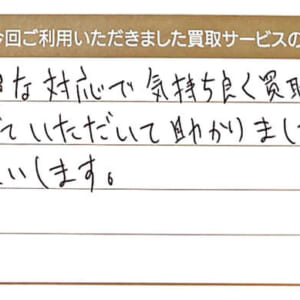 今回ご利用いただきました買取サービスの
な対応で気持ち良く買取
ていただいて助かりまし
いします。